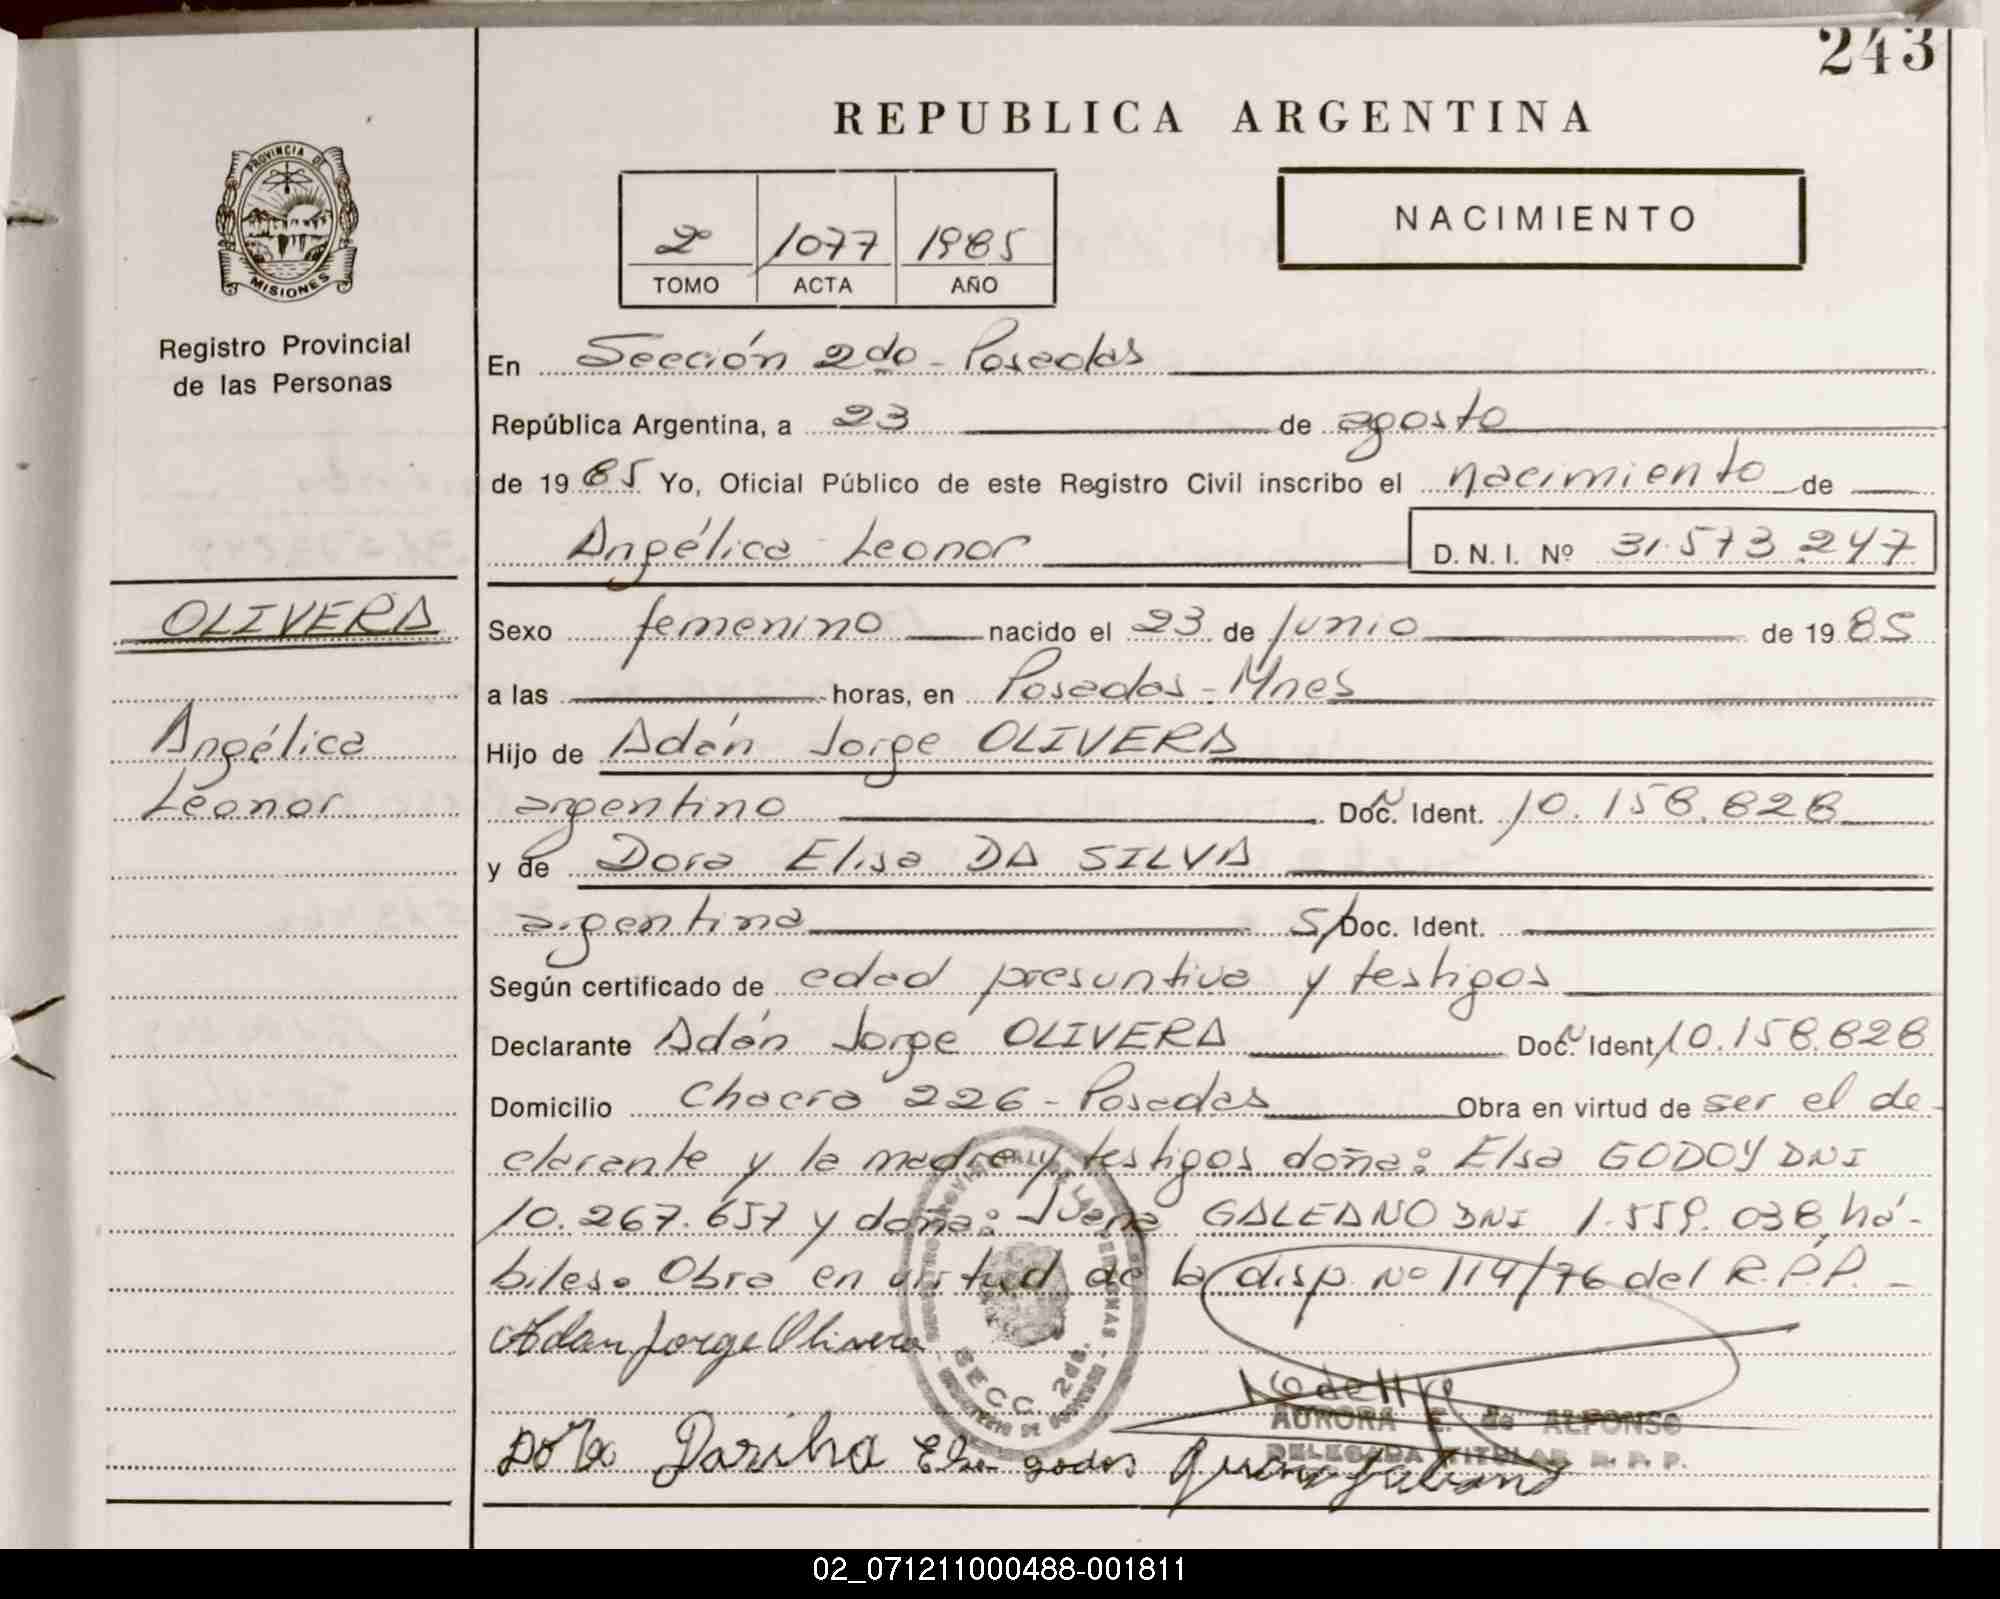 243
REPUBLICA ARGENTINA
PROVINCIA DE
MISIONES
Registro Provincial
de las Personas
2º 1077 1985
TOMO ACTA AÑO
NACIMIENTO
En Sección 2do - Posadas
República Argentina, a 23 de agosto
de 1985 Yo, Oficial Público de este Registro Civil inscribo el nacimiento de
Angélica Leonor D. N. I. Nº 31.573.247
OLIVERA
Angélica
Leonor
Sexo femenino nacido el 23 de junio de 1985
a las horas, en Posadas - Mnes
Hijo de Adán Jorge OLIVERA
argentino Doc. Ident. 10.158.828
y de Dora Elisa DA SILVA
argentina S/Doc. Ident.
Según certificado de edad presuntiva y testigos
Declarante Adán Jorge OLIVERA Doc. Ident 10.158.828
Domicilio Chacra 226 - Posadas Obra en virtud de ser el de-
clarante y la madre y testigos doña: Elsa GODOY DNI
10.267.657 y doña: Juana GALEANO DNI 1.559.038 há-
biles. Obra en virtud de la disp. Nº 114/76 del R.P.P. -
Adan Jorge Olivera
SECC. 2da.
AURORA E. de ALFONSO
DELEGADA TITULAR R. P. P.
02_071211000488-001811